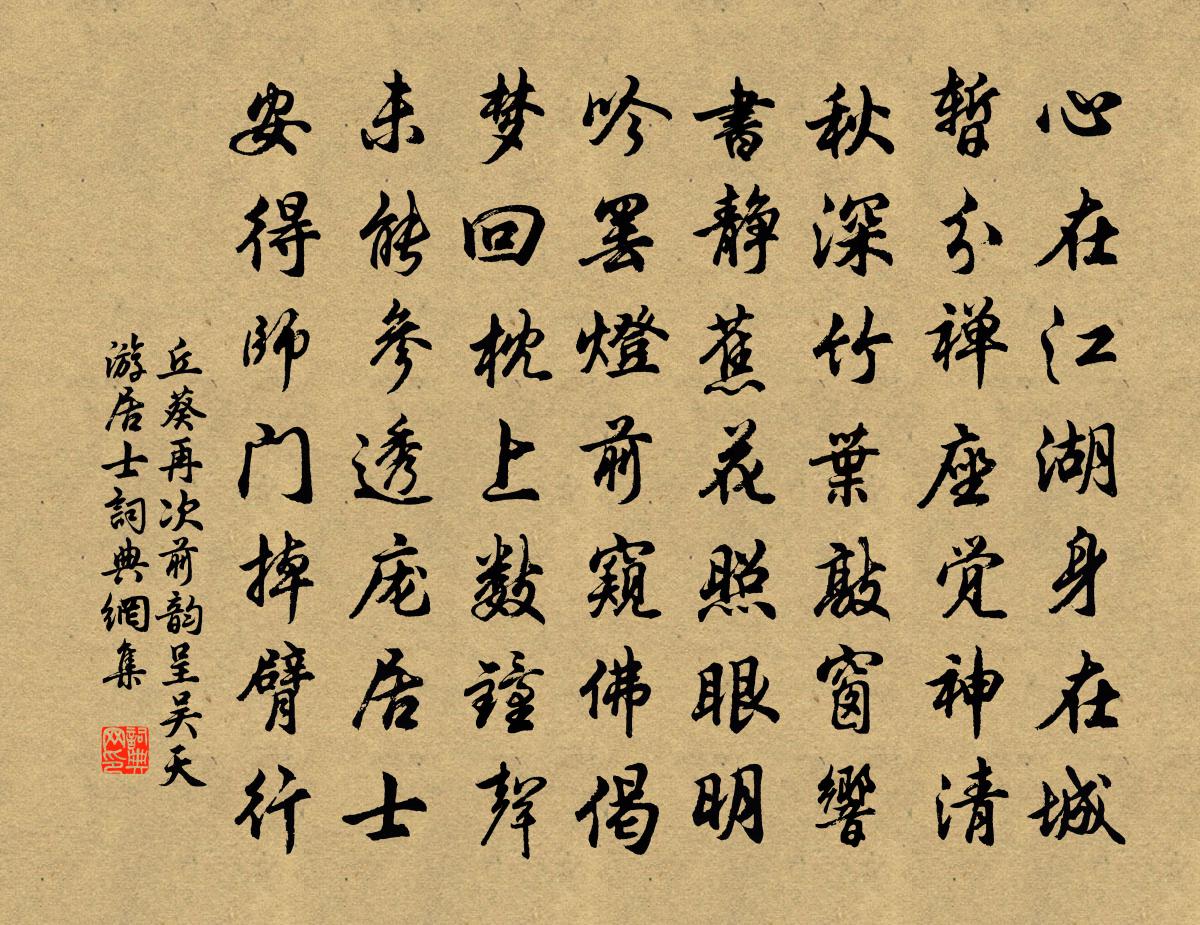 心在江湖身在城
暫分禅座觉神清
秋深竹葉敲窗響
書静蕉花照眼明
吟罢燈前窺佛偈
梦回枕上数鐘聲
未能參透庞居士
安得师门掉臂行
丘葵再次前韵呈吴天
游居士詞典網集
詞典
网印